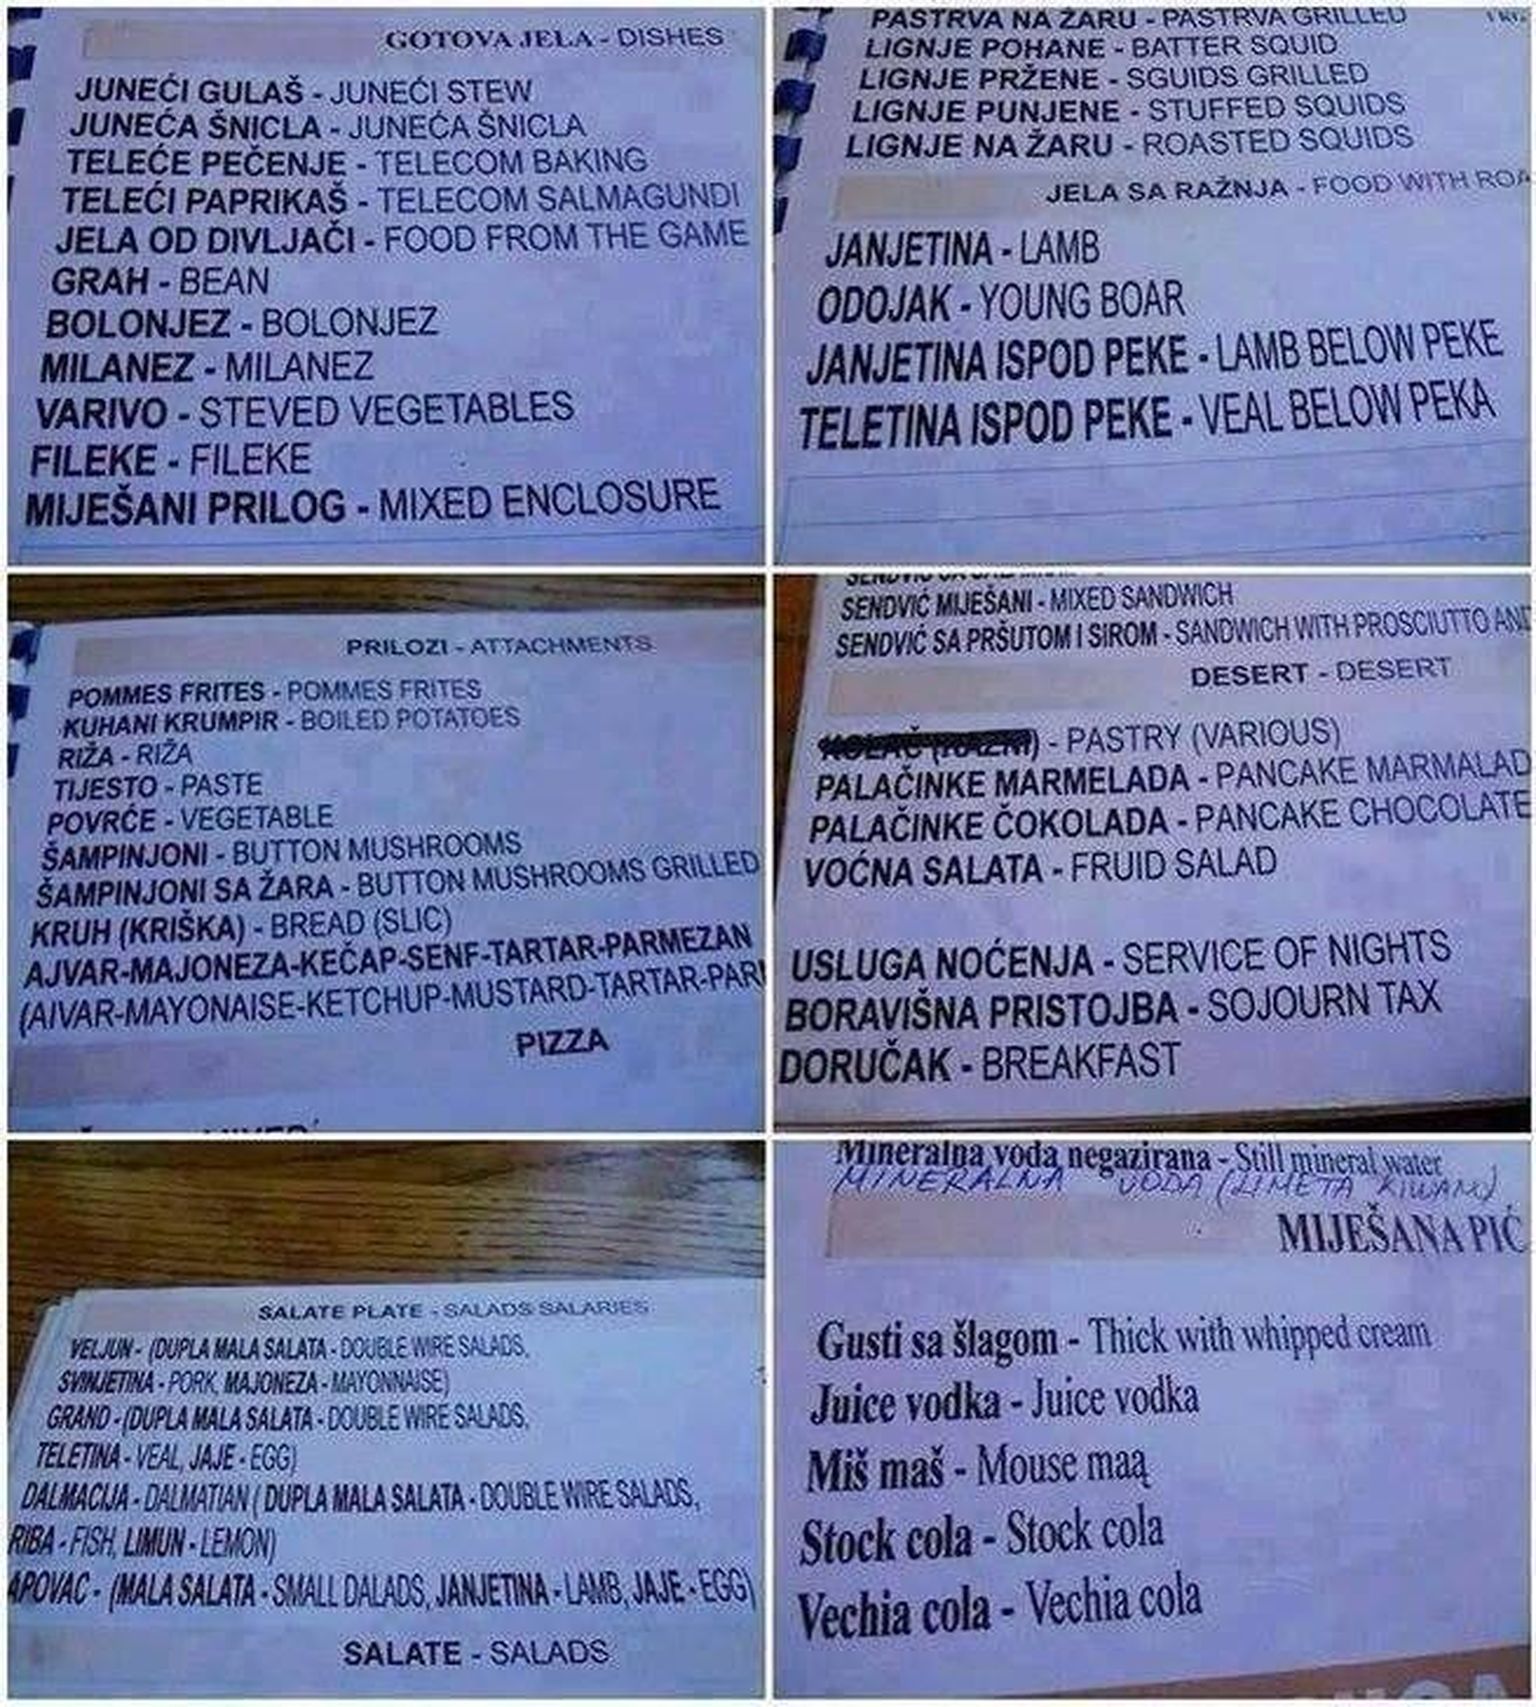 GOTOVA JELA - DISHES
JUNEĆI GULAŠ - JUNEĆI STEW
JUNEĆA ŠNICLA - JUNEĆA ŠNICLA
TELEĆE PEČENJE - TELECOM BAKING
TELEĆI PAPRIKAŠ - TELECOM SALMAGUNDI
JELA OD DIVLJAČI - FOOD FROM THE GAME
GRAH - BEAN
BOLONJEZ - BOLONJEZ
MILANEZ - MILANEZ
VARIVO - STEVED VEGETABLES
FILEKE - FILEKE
MIJEŠANI PRILOG - MIXED ENCLOSURE
PASTRVA NA ŽARU - PASTRVA GRILLED
LIGNJE POHANE - BATTER SQUID
LIGNJE PRŽENE - SGUIDS GRILLED
LIGNJE PUNJENE - STUFFED SQUIDS
LIGNJE NA ŽARU - ROASTED SQUIDS
JELA SA RAŽNJA - FOOD WITH ROA
JANJETINA - LAMB
ODOJAK - YOUNG BOAR
JANJETINA ISPOD PEKE - LAMB BELOW PEKE
TELETINA ISPOD PEKE - VEAL BELOW PEKA
PRILOZI - ATTACHMENTS
POMMES FRITES - POMMES FRITES
KUHANI KRUMPIR - BOILED POTATOES
RIŽA - RIŽA
TIJESTO - PASTE
POVRĆE - VEGETABLE
ŠAMPINJONI - BUTTON MUSHROOMS
ŠAMPINJONI SA ŽARA - BUTTON MUSHROOMS GRILLED
KRUH (KRIŠKA) - BREAD (SLIC)
AJVAR-MAJONEZA-KEČAP-SENF-TARTAR-PARMEZAN
(AIVAR-MAYONAISE-KETCHUP-MUSTARD-TARTAR-PAR
PIZZA
SENDVIĆ MIJEŠANI - MIXED SANDWICH
SENDVIĆ SA PRŠUTOM I SIROM - SANDWICH WITH PROSCIUTTO AND
DESERT - DESERT
KOLAČ (RAZNI) - PASTRY (VARIOUS)
PALAČINKE MARMELADA - PANCAKE MARMALAD
PALAČINKE ČOKOLADA - PANCAKE CHOCOLATE
VOĆNA SALATA - FRUID SALAD
USLUGA NOĆENJA - SERVICE OF NIGHTS
BORAVIŠNA PRISTOJBA - SOJOURN TAX
DORUČAK - BREAKFAST
SALATE PLATE - SALADS SALARIES
VELJUN - (DUPLA MALA SALATA - DOUBLE WIRE SALADS,
SVINJETINA - PORK, MAJONEZA - MAYONNAISE)
GRAND - (DUPLA MALA SALATA - DOUBLE WIRE SALADS,
TELETINA - VEAL, JAJE - EGG)
DALMACIJA - DALMATIAN ( DUPLA MALA SALATA - DOUBLE WIRE SALADS,
RIBA - FISH, LIMUN - LEMON)
APOVAC - (MALA SALATA - SMALL DALADS, JANJETINA - LAMB, JAJE - EGG)
SALATE - SALADS
Mineralna voda negazirana - Still mineral water
MINERALNA VODA (LIMETA KIWANI)
MIJEŠANA PIĆ
Gusti sa šlagom - Thick with whipped cream
Juice vodka - Juice vodka
Miš maš - Mouse maą
Stock cola - Stock cola
Vechia cola - Vechia cola